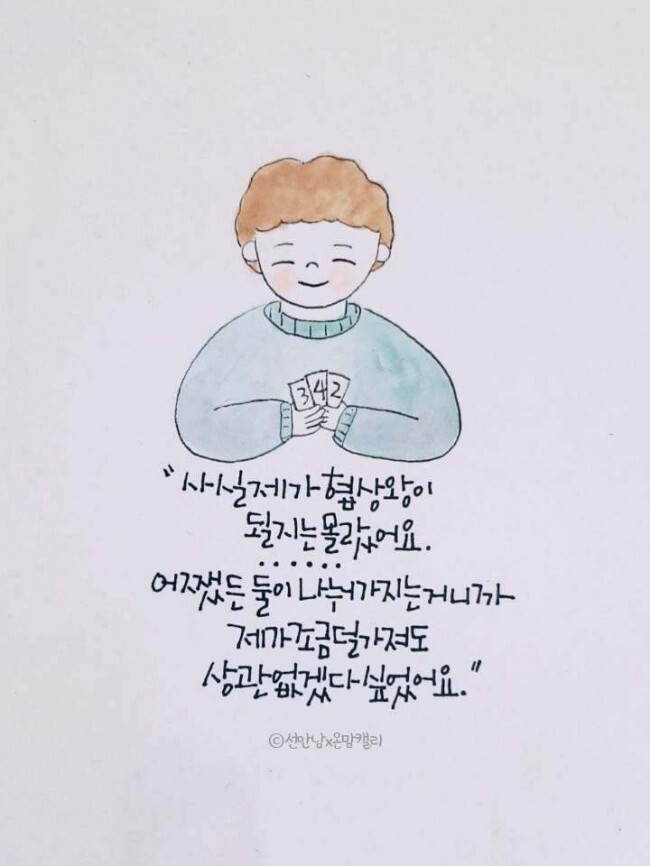 3 4 2
"사실 제가 협상왕이
될지는 몰랐어요.
......
어쨌든 둘이 나눠가지는거니까
제가 조금 덜 가져도
상관없겠다 싶었어요."
©선안남x온맘캘리